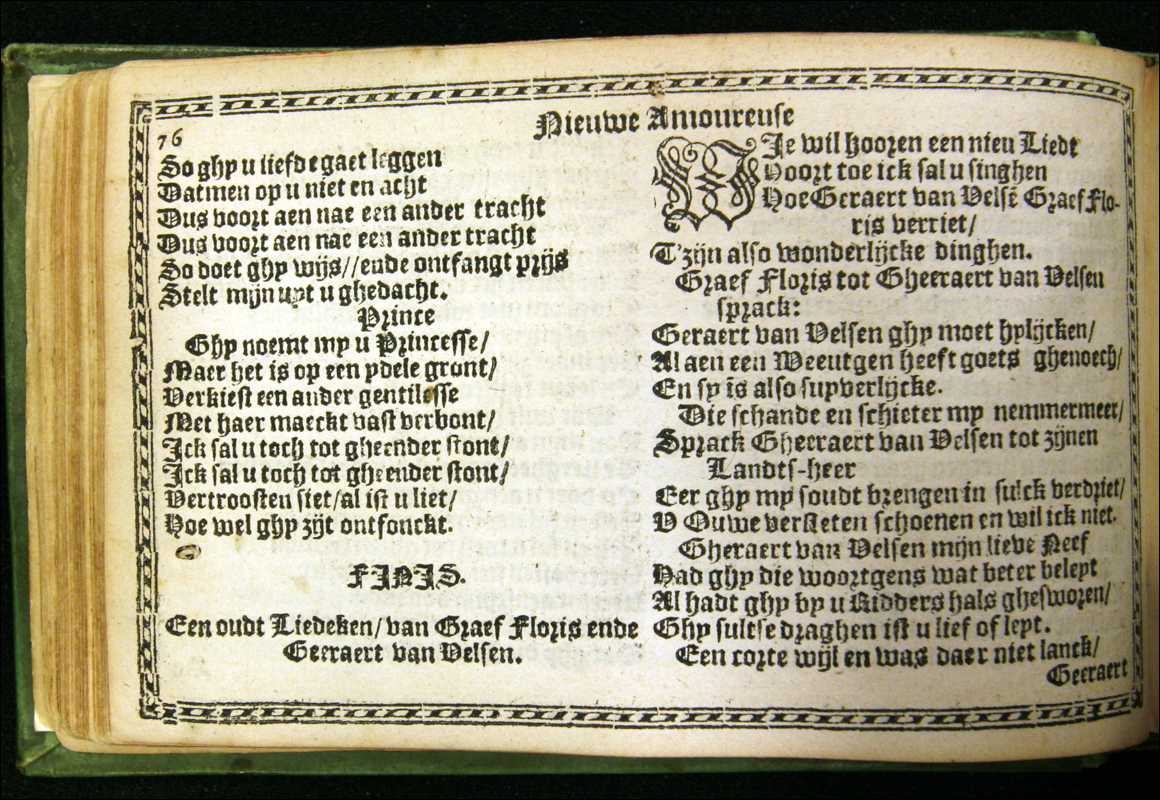 76
Nieuwe Amoureuse
So ghy u liefde gaet leggen
Datmen op u niet en acht
Dus voort aen nae een ander tracht
Dus voort aen nae een ander tracht
So doet ghy wijs//ende ontfangt prijs
Stelt mijn uyt u ghedacht.
Prince
Ghy noemt my u Princesse/
Maer het is op een ydele gront/
Verkiest een ander gentilesse
Met haer maeckt vast verbont/
Ick sal u toch tot gheender stont/
Ick sal u toch tot gheender stont/
Vertroosten siet/al ist u liet/
Hoe wel ghy zijt ontfonckt.
FINIS.
Een oudt Liedeken/van Graef Floris ende
Geeraert van Velsen.
WIe wil hooren een nieu Liedt
Voort toe ick sal u singhen
Hoe Geraert van Velsē Graef Flo-
ris verriet/
T'zijn also wonderlijcke dinghen.
Graef Floris tot Gheeraert van Velsen
sprack:
Geraert van Velsen ghy moet hylijcken/
Al aen een Weeutgen heeft goets ghenoech/
En sy is also supverlijcke.
Die schande en schieter my nemmermeer/
Sprack Gheeraert van Velsen tot zijnen
Landts-heer
Eer ghy my soudt brengen in sulck verdriet/
V Ouwe versleten schoenen en wil ick niet.
Gheraert van Velsen mijn lieve Neef
Had ghy die woortgens wat beter beleyt
Al hadt ghy by u Ridders hals ghesworen/
Ghy sultse draghen ist u lief of leyt.
Een corte wijl en was daer niet lanck/
Geeraert